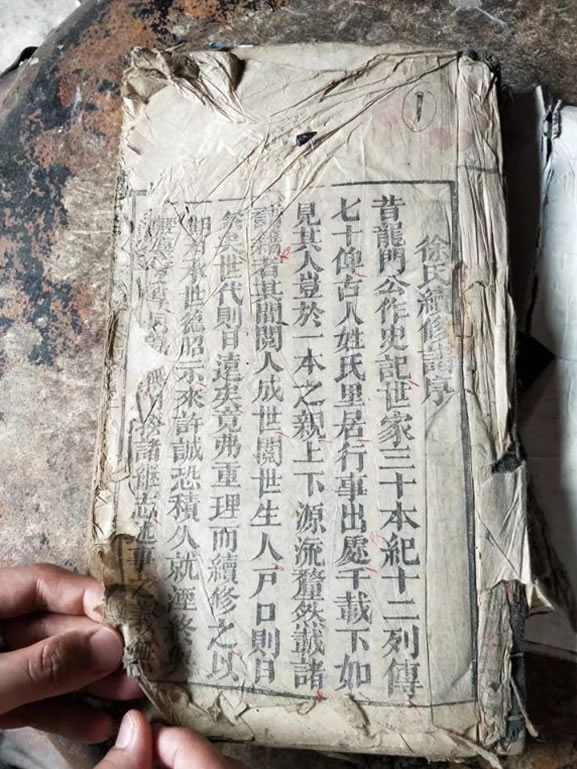 徐氏續修譜序
昔龍門公作史記世家三十本紀十二列傳
七十俾古人姓氏里居行事出處千載下如
見其人豈於一本之親上下源流釐然載諸
譜牒者其間閱人成世閱世生人戶口則日
繁矣世代則日遠矣竟弗重理而續修之以
期本世德昭示來許誠恐積久就湮終
諸繼志述事之義